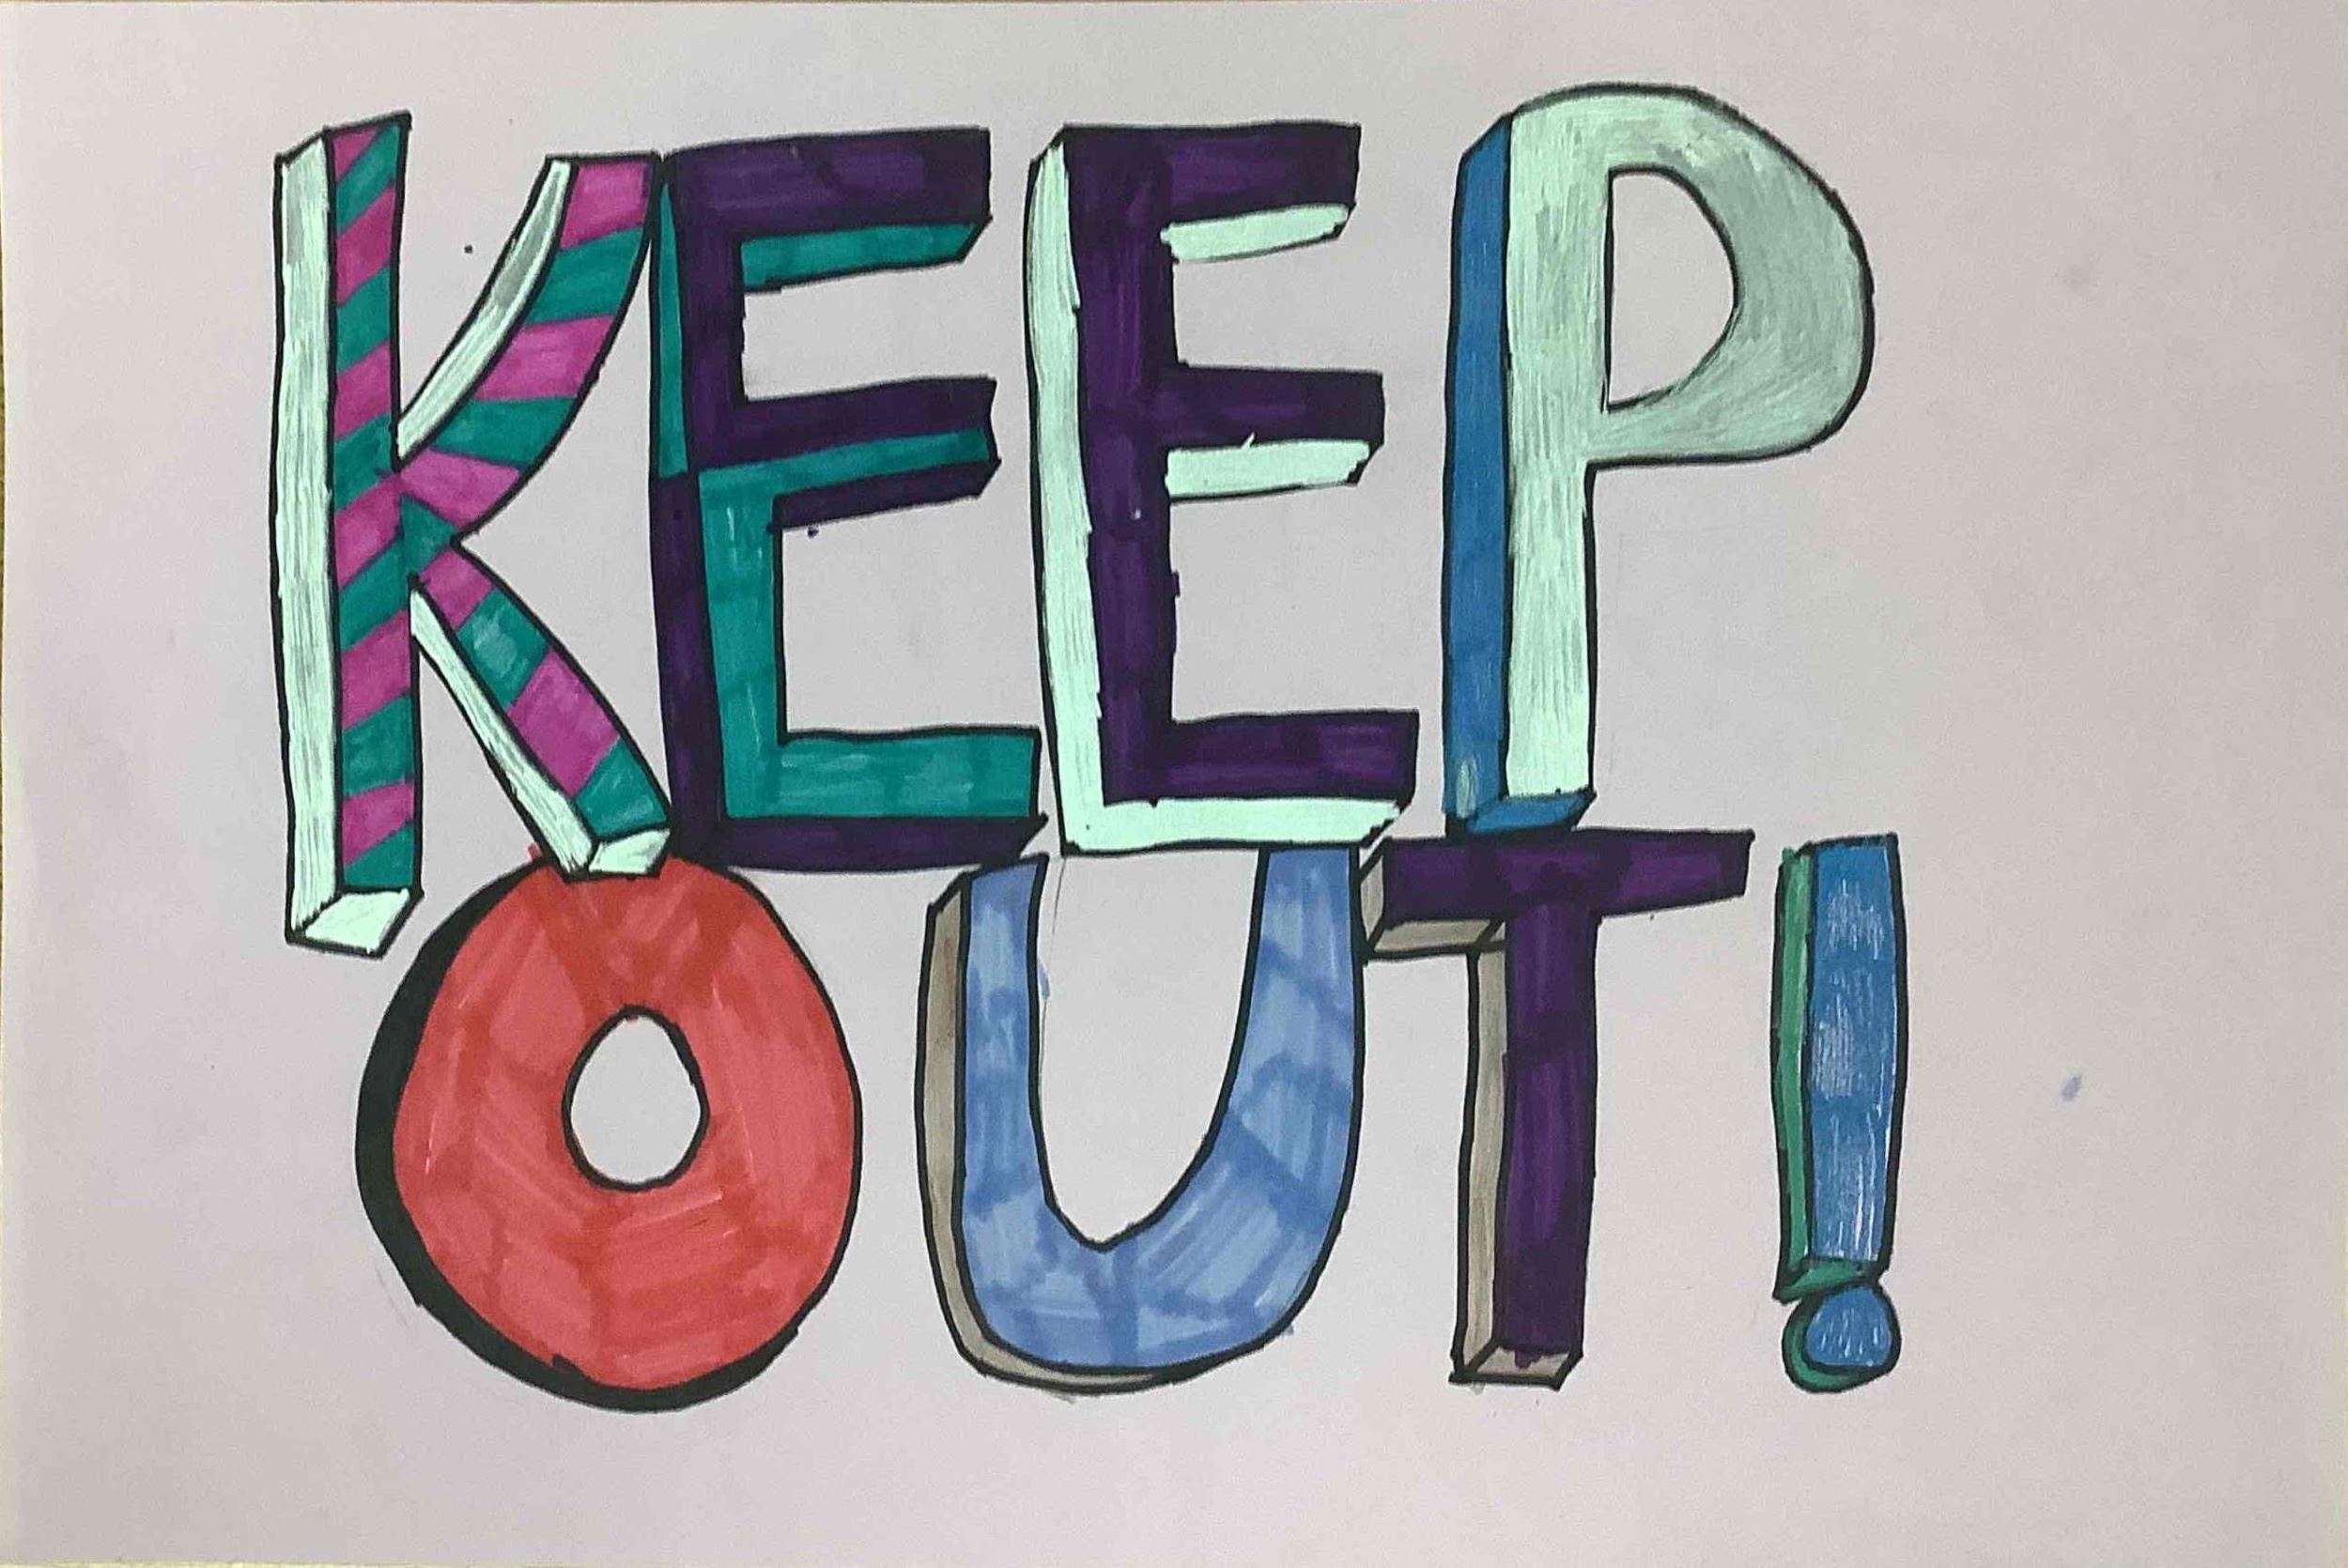 KEEP
OUT!